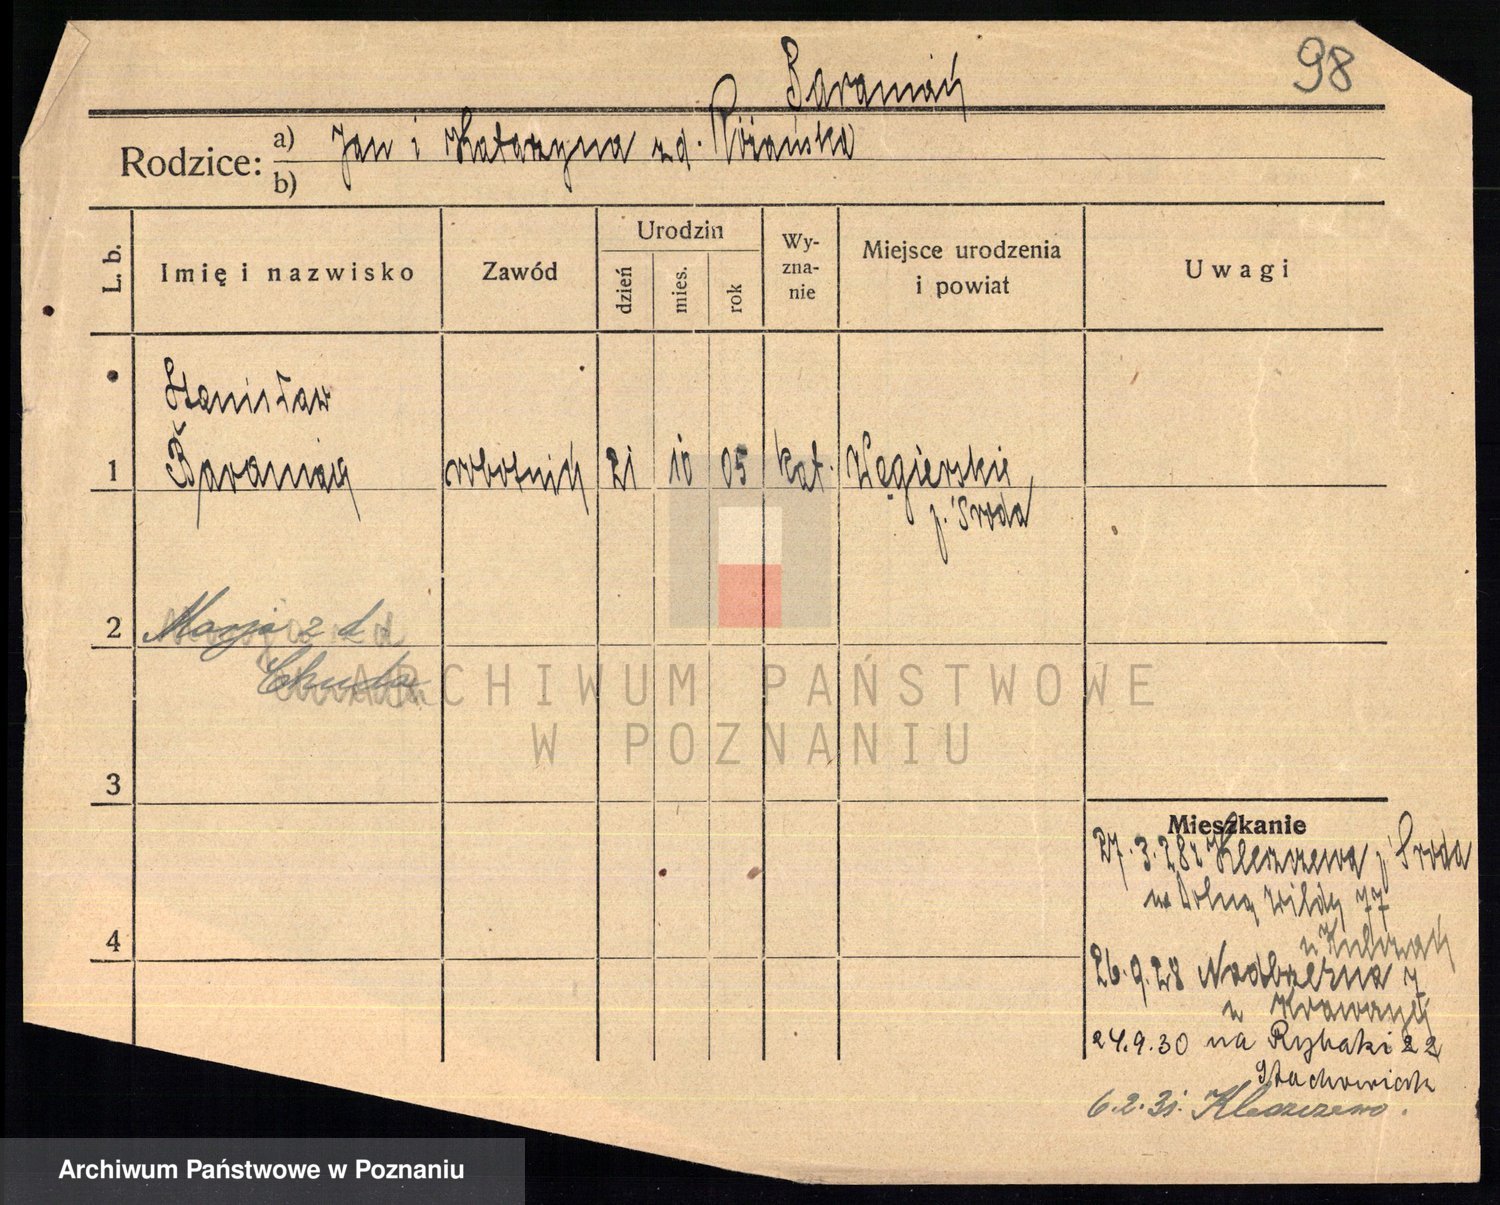 98
Baraniak
Rodzice: a) Jan i Katarzyna z d. Różańska
b)
L. b. Imię i nazwisko Zawód Urodzin dzień mies. rok Wy-zna-nie Miejsce urodzenia i powiat Uwagi
Stanisław
1 Baraniak robotnik 21 10 05 kat. Węgierskie
p. Środa
2 Marja z d
Chuda
3
4
Mieszkanie
27.3.28 z Kleszczewa p. Środa
na Dolną Wildę 77
26.9.28 Nadbrzeżna 7
u
24.9.30 na Rybaki 22
Stachowiak
6.2.31. Kleszczewo.
ARCHIWUM PAŃSTWOWE
W POZNANIU
Archiwum Państwowe w Poznaniu